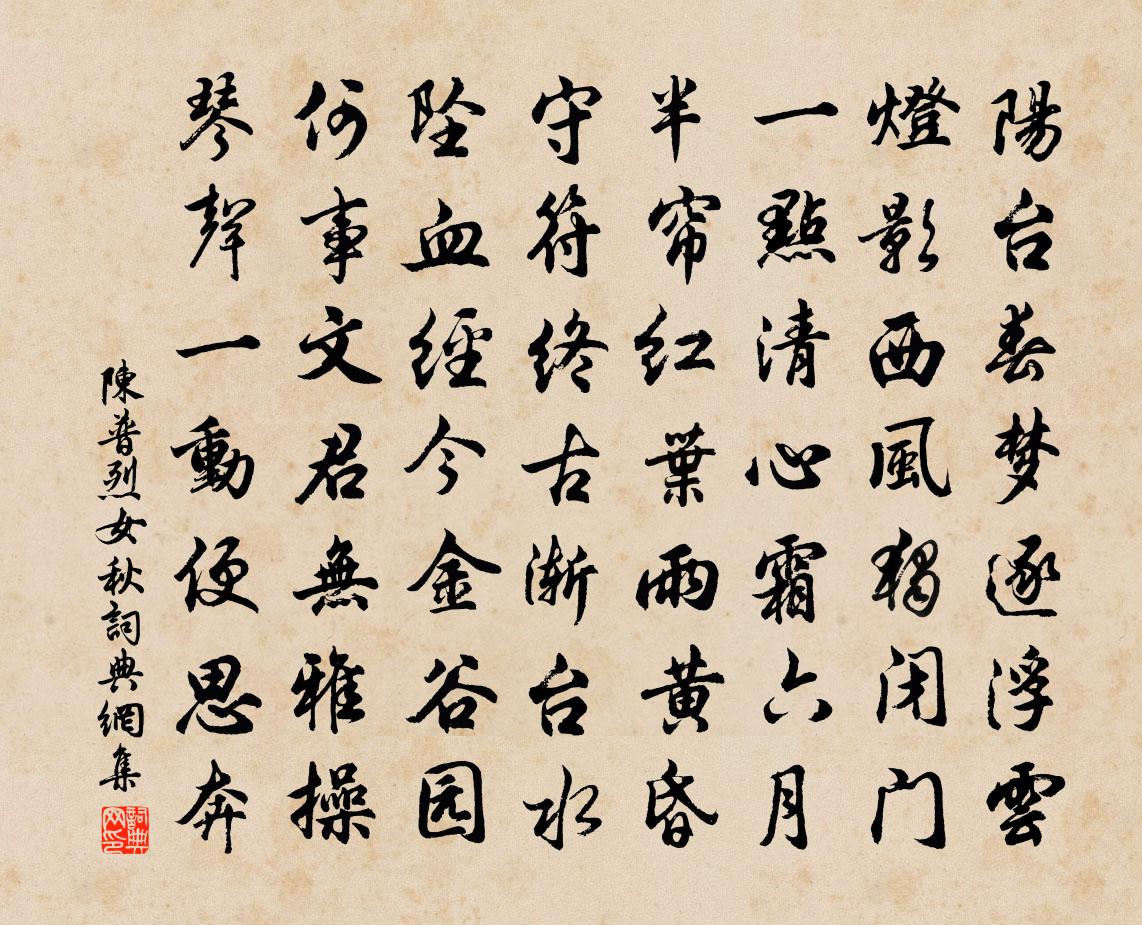 陽台春梦逐浮雲
燈影西風獨闭门
一點清心霜六月
半帘红葉雨黄昏
守符终古漸台水
坠血經今金谷园
何事文君無雅操
琴聲一動便思奔
陳普烈女秋詞典網集
詞典网印